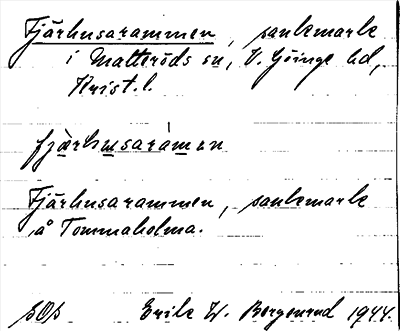 Fjärhusarammen, sankmark
i Matteröds sn, V. Göinge hd,
Krist. l.
fjærhusaramen
Fjärhusarammen, sankmark
å Tommaholma.
Erik W. Bergenrud 1944.